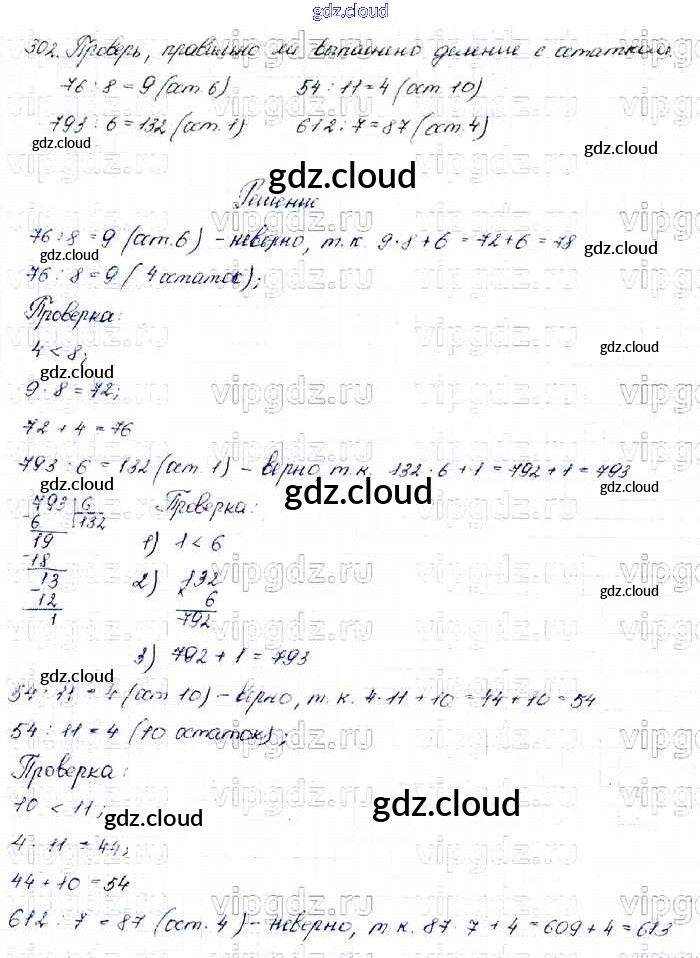 gdz.cloud
302. Проверь, правильно ли выполнено деление с остатком.
76 : 8 = 9 (ост. 6) 54 : 11 = 4 (ост. 10)
793 : 6 = 132 (ост. 1) 612 : 7 = 87 (ост. 4)
Решение
76 : 8 = 9 (ост. 6) - неверно, т.к. 9 · 8 + 6 = 72 + 6 = 78
76 : 8 = 9 (4 остаток);
Проверка:
4 < 8;
9 · 8 = 72;
72 + 4 = 76
793 : 6 = 132 (ост. 1) - верно т.к. 132 · 6 + 1 = 792 + 1 = 793
793 6 Проверка:
6 132
19 1) 1 < 6
18
13 2) 132
12 × 6
1 792
3) 792 + 1 = 793
54 : 11 = 4 (ост 10) - верно, т.к. 4 · 11 + 10 = 44 + 10 = 54
54 : 11 = 4 (10 остаток);
Проверка:
10 < 11;
4 · 11 = 44;
44 + 10 = 54
612 : 7 = 87 (ост. 4) - неверно, т.к. 87 · 7 + 4 = 609 + 4 = 613
gdz.cloud
vipgdz.ru